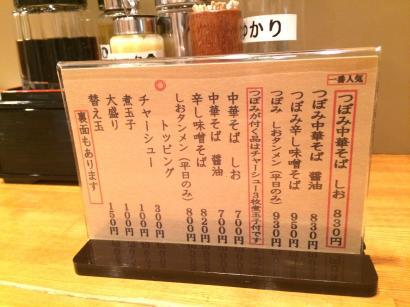 一番人気
つぼみ中華そば しお 830円
つぼみ中華そば 醤油 830円
つぼみ辛し味噌そば 950円
つぼみ しおタンメン(平日のみ) 930円
つぼみが付く品はチャーシュー3枚煮玉子付です
中華そば しお 700円
中華そば 醤油 700円
辛し味噌そば 820円
しおタンメン(平日のみ) 800円
◎ トッピング
チャーシュー 300円
煮玉子 100円
大盛り 100円
替え玉 150円
裏面もあります
ゆかり